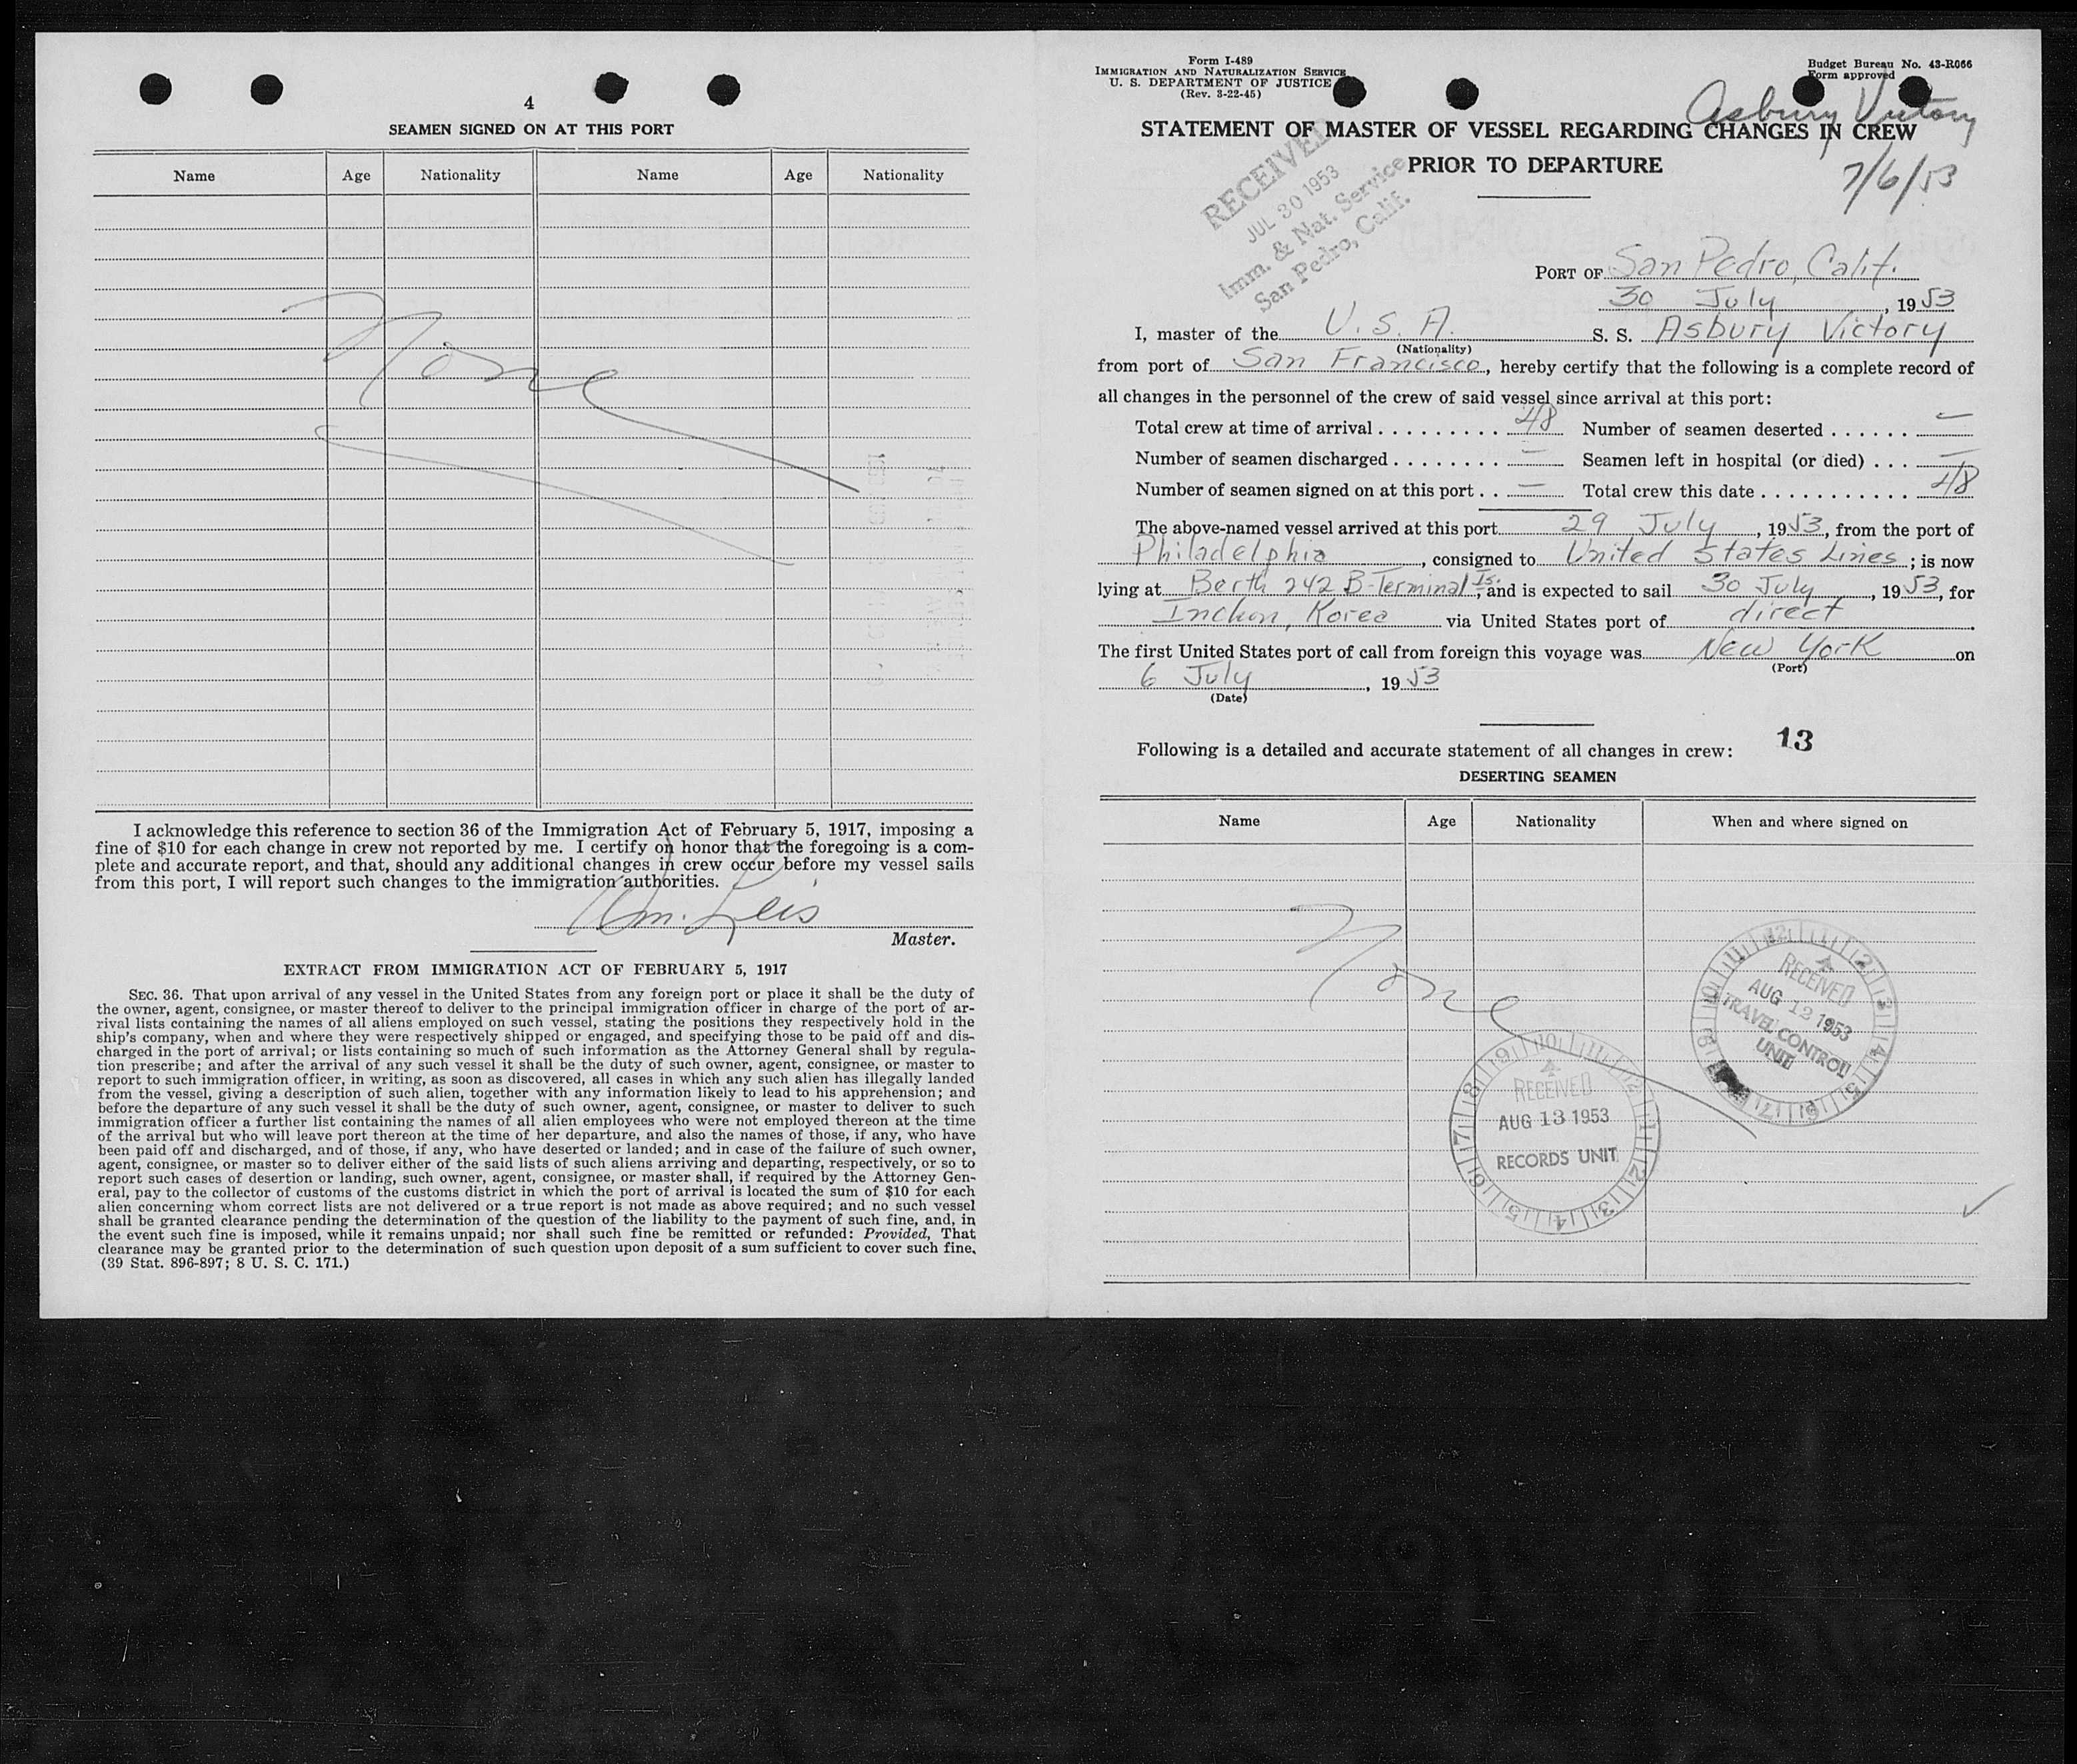 4
SEAMEN SIGNED ON AT THIS PORT
Name Age Nationality Name Age Nationality
None
I acknowledge this reference to section 36 of the Immigration Act of February 5, 1917, imposing a
fine of $10 for each change in crew not reported by me. I certify on honor that the foregoing is a com-
plete and accurate report, and that, should any additional changes in crew occur before my vessel sails
from this port, I will report such changes to the immigration authorities.
Wm. Leis
Master.
EXTRACT FROM IMMIGRATION ACT OF FEBRUARY 5, 1917
SEC. 36. That upon arrival of any vessel in the United States from any foreign port or place it shall be the duty of
the owner, agent, consignee, or master thereof to deliver to the principal immigration officer in charge of the port of ar-
rival lists containing the names of all aliens employed on such vessel, stating the positions they respectively hold in the
ship's company, when and where they were respectively shipped or engaged, and specifying those to be paid off and dis-
charged in the port of arrival; or lists containing so much of such information as the Attorney General shall by regula-
tion prescribe; and after the arrival of any such vessel it shall be the duty of such owner, agent, consignee, or master to
report to such immigration officer, in writing, as soon as discovered, all cases in which any such alien has illegally landed
from the vessel, giving a description of such alien, together with any information likely to lead to his apprehension; and
before the departure of any such vessel it shall be the duty of such owner, agent, consignee, or master to deliver to such
immigration officer a further list containing the names of all alien employees who were not employed thereon at the time
of the arrival but who will leave port thereon at the time of her departure, and also the names of those, if any, who have
been paid off and discharged, and of those, if any, who have deserted or landed; and in case of the failure of such owner,
agent, consignee, or master so to deliver either of the said lists of such aliens arriving and departing, respectively, or so to
report such cases of desertion or landing, such owner, agent, consignee, or master shall, if required by the Attorney Gen-
eral, pay to the collector of customs of the customs district in which the port of arrival is located the sum of $10 for each
alien concerning whom correct lists are not delivered or a true report is not made as above required; and no such vessel
shall be granted clearance pending the determination of the question of the liability to the payment of such fine, and, in
the event such fine is imposed, while it remains unpaid; nor shall such fine be remitted or refunded: Provided, That
clearance may be granted prior to the determination of such question upon deposit of a sum sufficient to cover such fine.
(39 Stat. 896-897; 8 U. S. C. 171.)
Form I-489
IMMIGRATION AND NATURALIZATION SERVICE
U. S. DEPARTMENT OF JUSTICE
(Rev. 3-22-45)
Budget Bureau No. 43-R066
Form approved
Asbury Victory
7/6/53
STATEMENT OF MASTER OF VESSEL REGARDING CHANGES IN CREW
PRIOR TO DEPARTURE
RECEIVED
JUL 30 1953
Imm. & Nat. Service
San Pedro, Calif.
PORT OF San Pedro, Calif.
30 July, 1953
I, master of the U.S.A. S. S. Asbury Victory
(Nationality)
from port of San Francisco, hereby certify that the following is a complete record of
all changes in the personnel of the crew of said vessel since arrival at this port:
Total crew at time of arrival . . . . . . . . . 48 Number of seamen deserted . . . . . . —
Number of seamen discharged . . . . . . . . — Seamen left in hospital (or died) . . . —
Number of seamen signed on at this port . . — Total crew this date . . . . . . . . . . . . 48
The above-named vessel arrived at this port 29 July, 1953, from the port of
Philadelphia, consigned to United States Lines; is now
lying at Berth 242 B-Terminal Is., and is expected to sail 30 July, 1953, for
Inchon, Korea via United States port of direct.
The first United States port of call from foreign this voyage was New York on
(Port)
6 July, 1953
(Date)
Following is a detailed and accurate statement of all changes in crew: 13
DESERTING SEAMEN
Name Age Nationality When and where signed on
None
RECEIVED
AUG 12 1953
TRAVEL CONTROL
UNIT
RECEIVED
AUG 13 1953
RECORDS UNIT